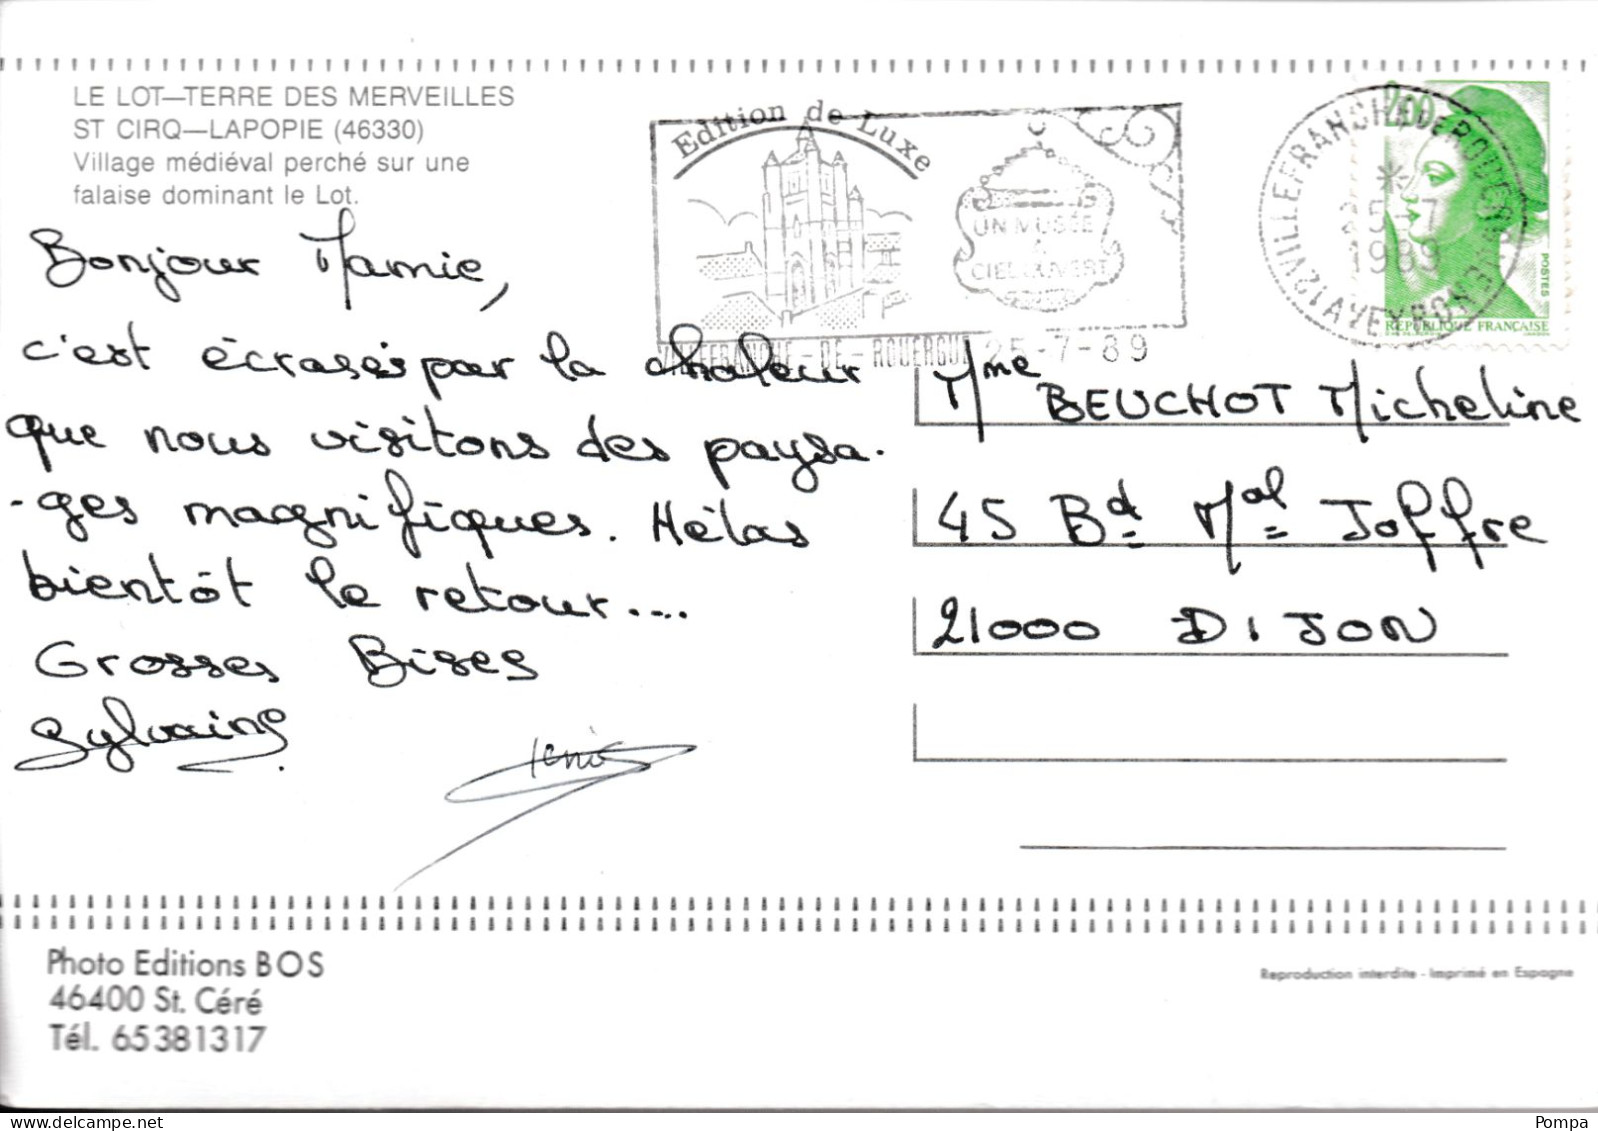 LE LOT—TERRE DES MERVEILLES
ST CIRQ—LAPOPIE (46330)
Village médiéval perché sur une
falaise dominant le Lot.
Bonjour Mamie,
c'est écrasés par la chaleur
que nous visitons des paysa-
-ges magnifiques. Hélas
bientôt le retour....
Grosses Bises
Sylvaine
Edition de Luxe
UN MUSÉE
A
CIEL OUVERT
VILLEFRANCHE-DE-ROUERGUE 25-7-89
2,00
VILLEFRANCHE DE ROUERGUE
25-7
1989
AVEYRON
POSTES
REPUBLIQUE FRANÇAISE
Mme BEUCHOT Micheline
45 Bd Mal Joffre
21000 DIJON
Photo Editions BOS
46400 St. Céré
Tél. 65381317
Reproduction interdite - Imprimé en Espagne
Pompa